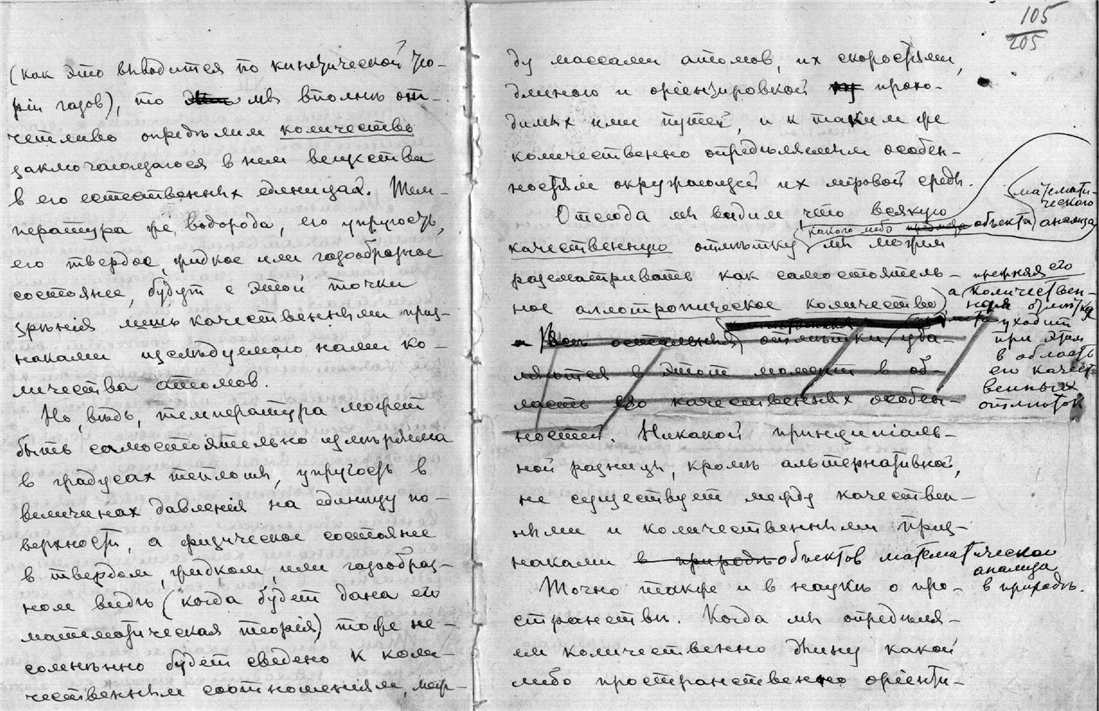 (как это выводится по кинетической тео-
рiи газов), то мы вполнѣ от-
четливо опредѣлим количество
заключающагося в нем вещества
в его естественных единицах. Тем-
пература же водорода, его упругость,
его твердое, жидкое или газообразное
состоянiе, будут с этой точки
зрѣнiя лишь качественными приз-
наками изслѣдуемого нами ко-
личества атомов.
Но, вѣдь, температура может
быть самостоятельно измѣрена
в градусах теплоты, упругость в
величинах давленiя на единицу по-
верхности, а физическое состоянiе
в твердом, жидком, или газообраз-
ном видѣ (когда будет дана его
математическая теорiя) тоже не-
сомнѣнно будет сведено к коли-
чественным соотношенiям, меж-
105
205
ду массами атомов, их скоростями,
длиною и орiентировкой прохо-
димых ими путей, и к таким же
количественно опредѣляемым особен-
ностям окружающей их мiровой среды.
Отсюда мы видим что всякую
качественную отмѣтку какого либо объекта математического анализа мы можем
разсматривать как самостоятель-
ное аллотропическое количество,
а прежняя его количествен-
ная отмѣтка
уходит
при этом
в область
его качест-
венных
отмѣток
а Всѣ остальныя отмѣтки уда-
ляются в этот момент в об-
ласть его качественных особен-
ностей. Никакой принципiаль-
ной разницы, кромѣ альтернативной,
не существует между качествен-
ными и количественными приз-
наками в природѣ объектов математическаго
анализа
в природѣ.
Точно также и в наукѣ о про-
странствѣ. Когда мы опредѣля-
ем количественно длину какой
либо пространственно орiенти-